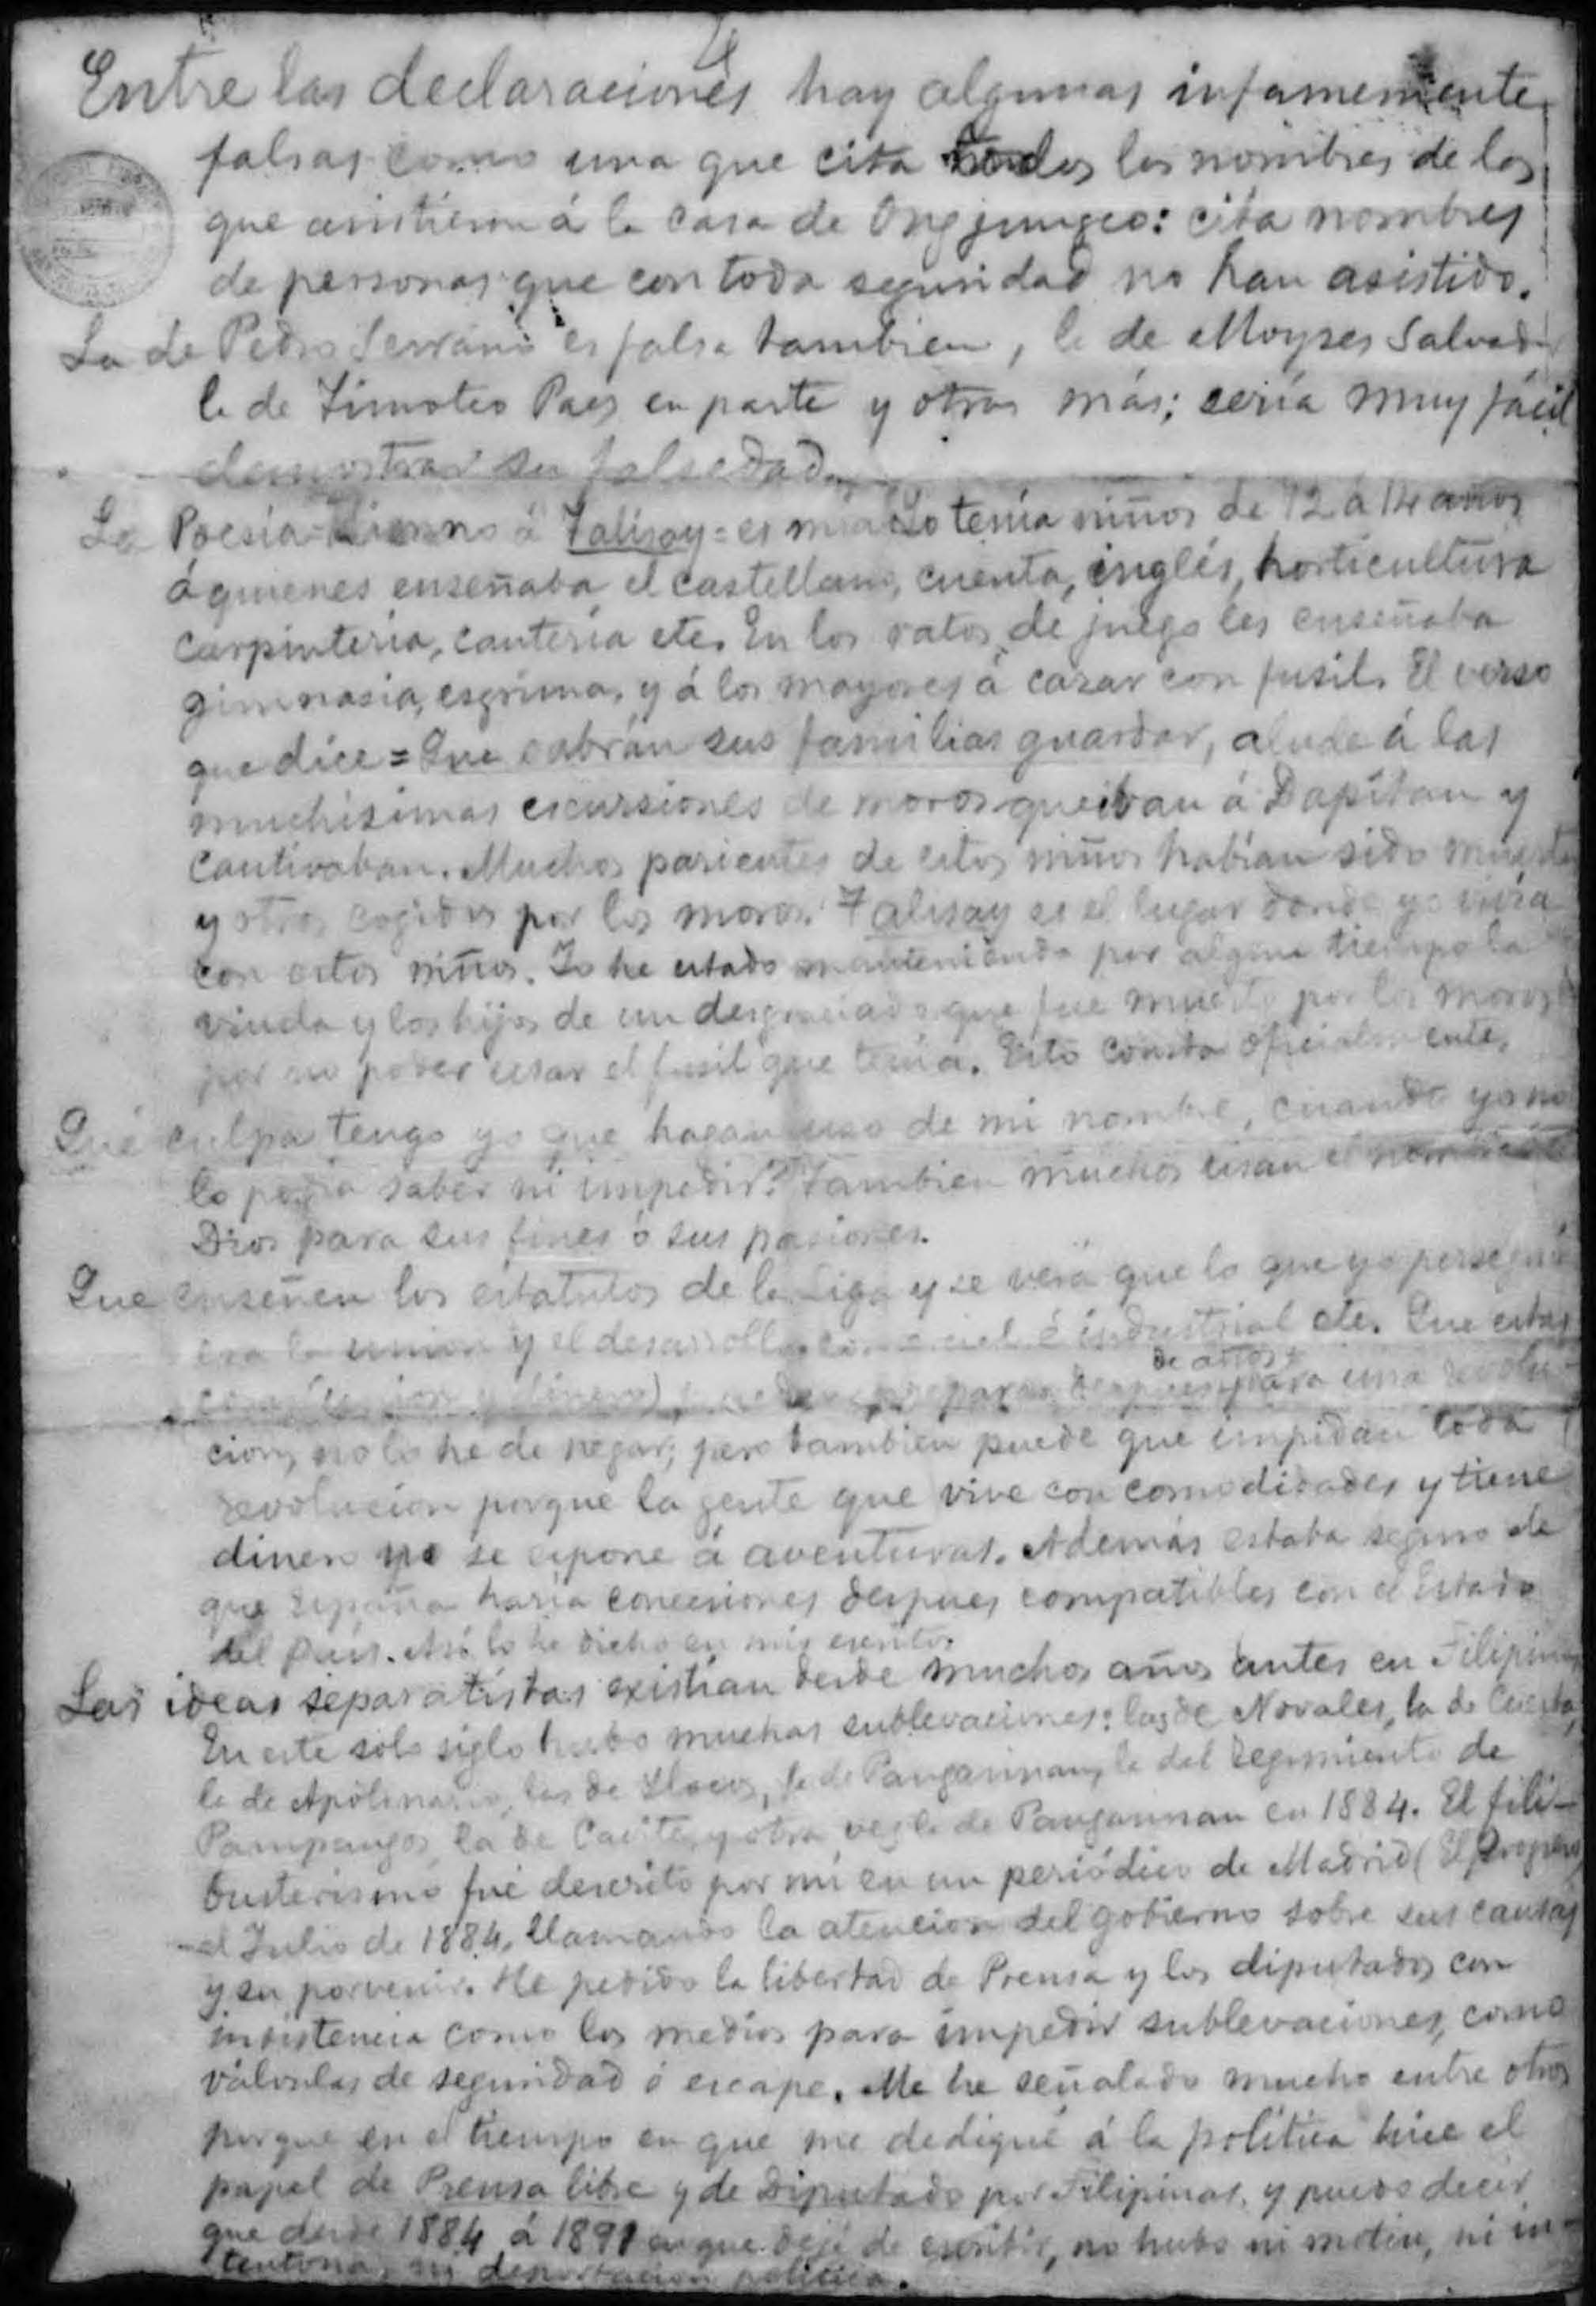 Entre las declaraciones hay algunas infamemente
falsas como una que cita todos los nombres de los
que asistieron á la casa de Ongjungco: cita nombres
de personas que con toda seguridad no han asistido.
La de Pedro Serrano es falsa tambien, la de Moyses Salvador
la de Timoteo Paez en parte y otras más; sería muy fácil
demostrar su falsedad.
La Poesía Himno á Talisay = es mia Yo tenía niños de 12 á 14 años
á quienes enseñaba el castellano, cuenta, inglés, horticultura
carpintería, cantería etc. En los ratos de juego les enseñaba
gimnasia, esgrima, y á los mayores á cazar con fusil. El verso
que dice = Que sabrán sus familias guardar, alude á las
muchísimas escursiones de moros que iban á Dapitan y
cautivaban. Muchos parientes de estos niños habían sido muertos
y otros cogidos por los moros. Talisay es el lugar donde yo vivía
con estos niños. Yo he estado manteniendo por algun tiempo la
viuda y los hijos de un desgraciado que fue muerto por los moros
por no poder usar el fusil que tenía. Esto consta oficialmente.
Qué culpa tengo yo que hagan uso de mi nombre, cuando yo no
lo podía saber ni impedir? Tambien muchos usan el nombre de
Dios para sus fines ó sus pasiones.
Que enseñen los estatutos de la Liga y se verá que lo que yo perseguía
era la union y el desarrollo comercial é industrial etc. Que estas
de años
cosas (union y dinero) puedan preparar despues para una revolu-
cion, no lo he de negar; pero tambien puede que impidan toda
revolucion porque la gente que vive con comodidades y tiene
dinero no se espone á aventuras. Además estaba seguro de
que España haría concesiones despues compatibles con el Estado
del País. Así lo he dicho en mis escritos.
Las ideas separatistas existían desde muchos años antes en Filipinas
En este solo siglo hubo muchas sublevaciones: las de Novales, la de Cuesta,
la de Apolinario, las de Ilocos, la de Pangasinan, la del regimiento de
Pampangos, la de Cavite, y otra vez la de Pangasinan en 1884. El fili-
busterismo fué descrito por mi en un periódico de Madrid (El Progreso)
el Julio de 1884, llamando la atencion del gobierno sobre sus causas
y su porvenir. He pedido la libertad de Prensa y los diputados con
insistencia como los medios para impedir sublevaciones, como
válvulas de seguridad ó escape. Me he señalado mucho entre otros
porque en el tiempo en que me dediqué á la política hice el
papel de Prensa libre y de Diputado por Filipinas, y puedo decir
que desde 1884 á 1891 en que dejé de escribir, no hubo ni motin, ni in-
tentona, ni deportacion política.